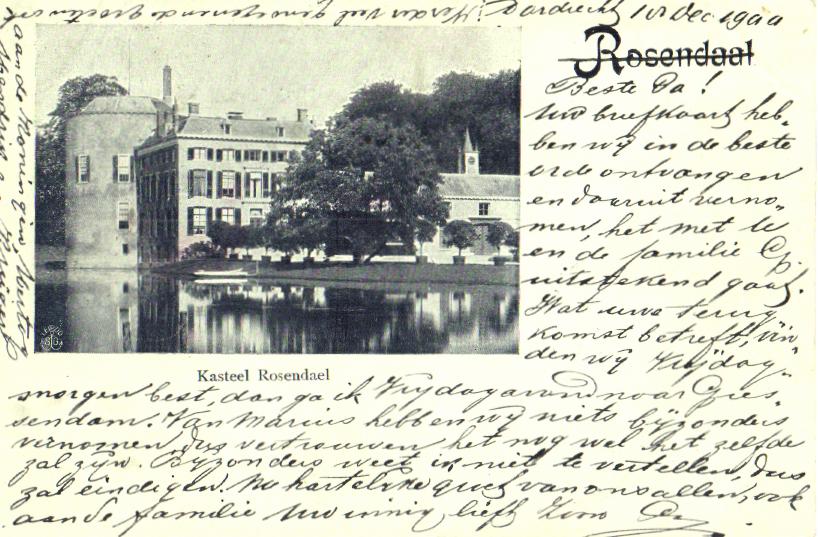 Dordrecht 18 Dec 1900
Rosendaal
Beste Pa!
Uw briefkaart heb-
ben wij in de beste
orde ontvangen
en daaruit verno-
men, het met U
en de familie
uitstekend gaat.
Wat uwe terug
komst betreft, vin
den wij Vrijdag-
Kasteel Rosendael
morgen best, dan ga ik Vrijdagavond naar Gies-
sendam. Van Marius hebben wij niets bijzonders
vernomen, dus vertrouwen het nog wel het zelfde
zal zijn. Bijzonders weet ik niet te vertellen, dus
zal eindigen. Na hartelijke groet van ons allen, ook
aan de familie Uw innig liefh Zoon